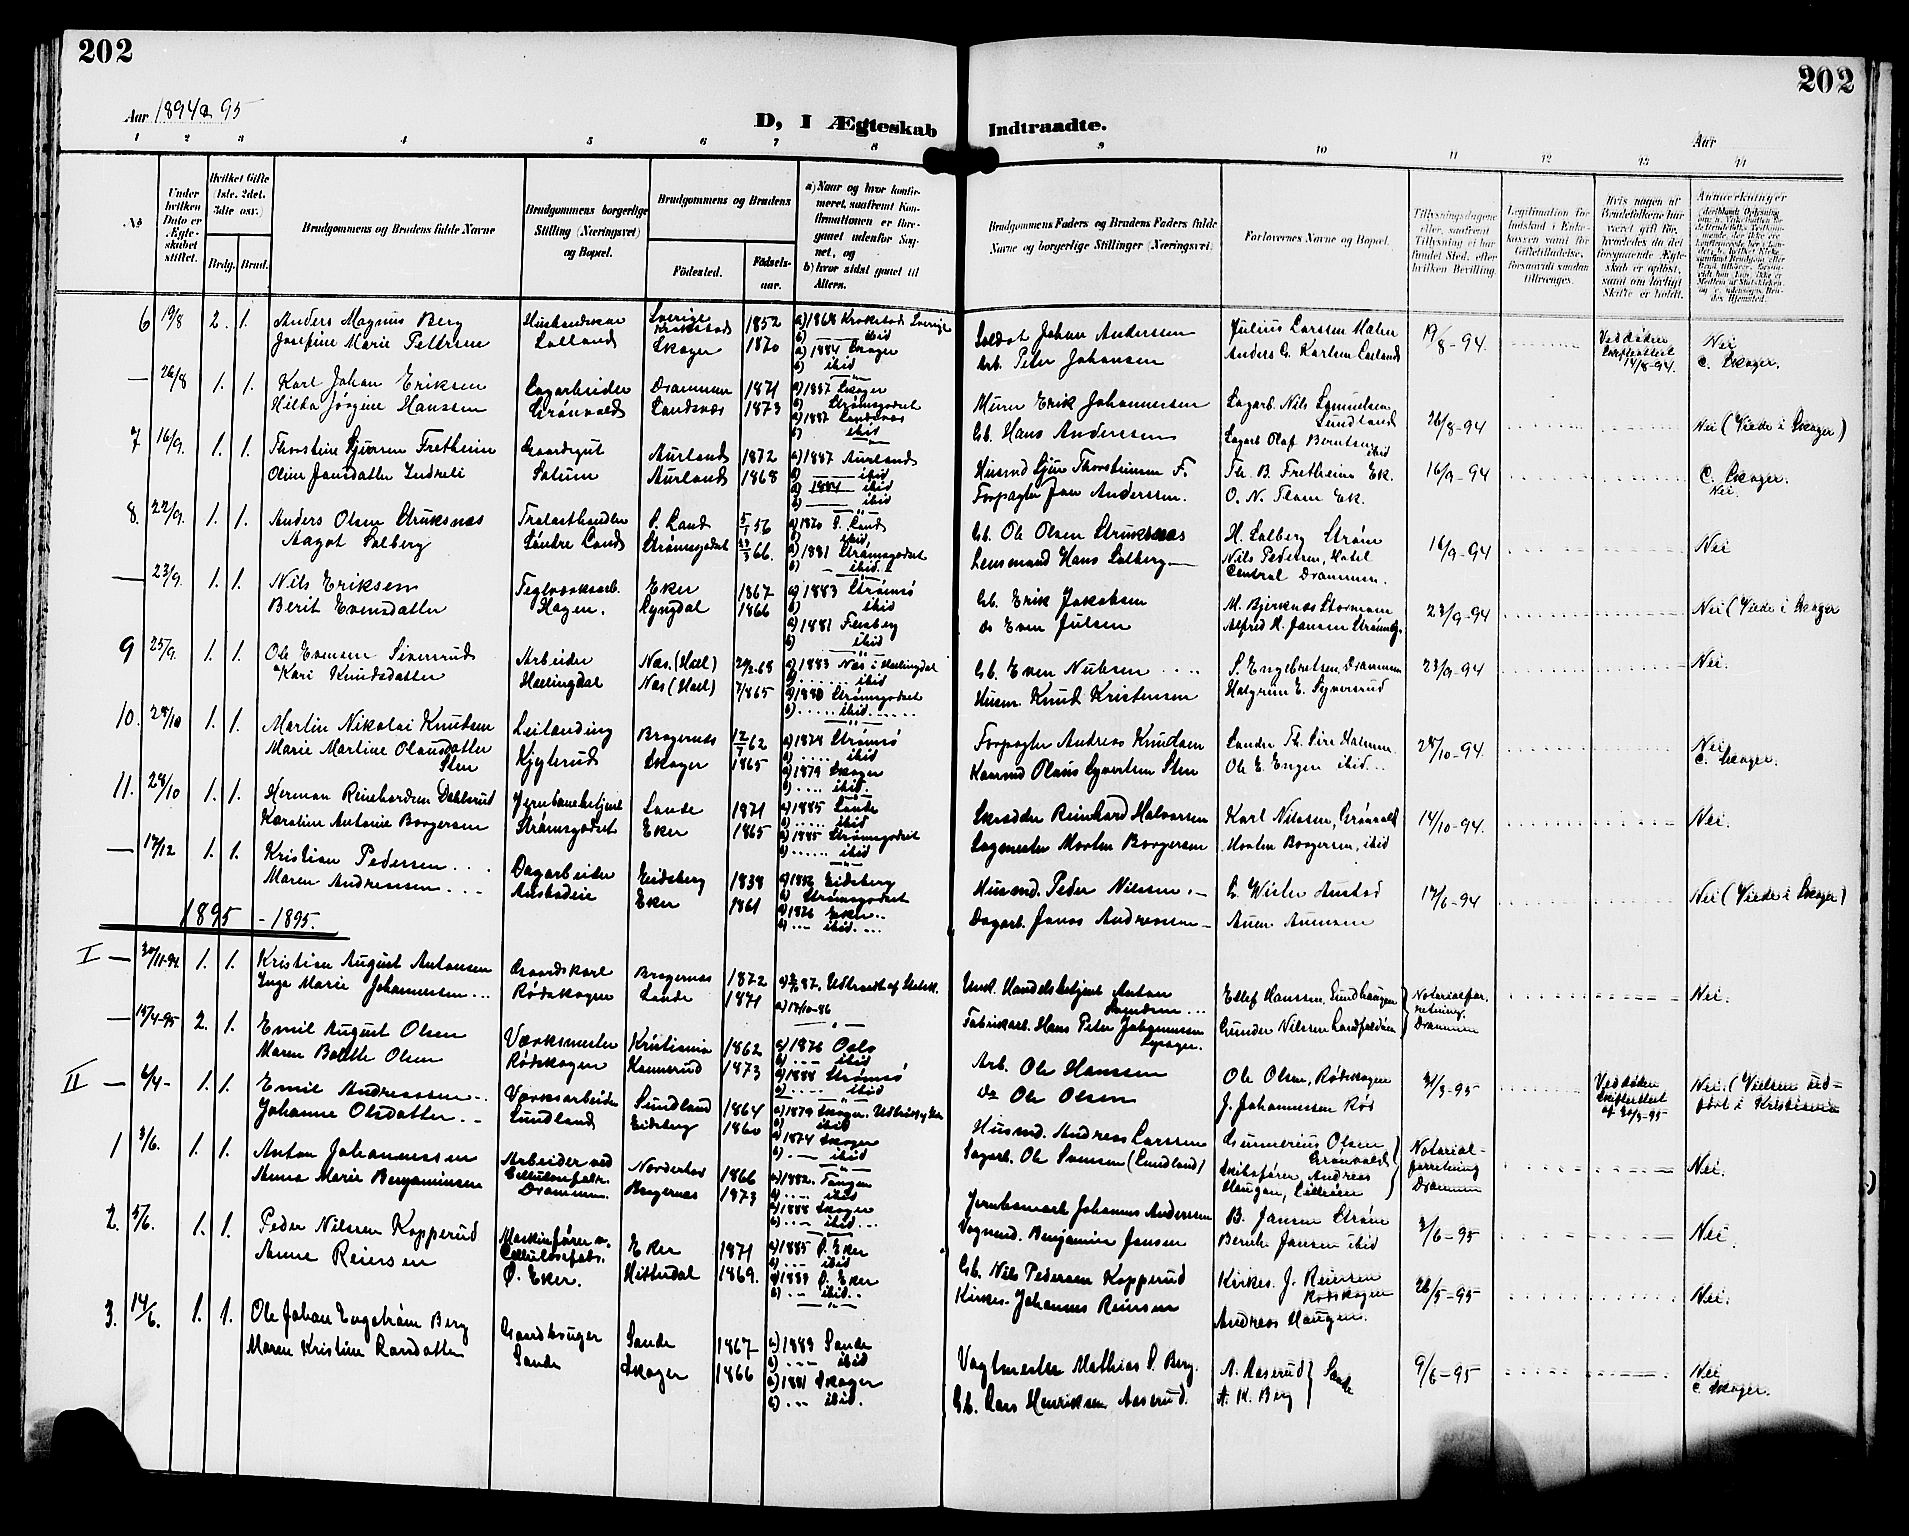 202
202
Aar 1894 & 95
D, I Ægteskab Indtraadte.
Aar
1 2 3 4 5 6 7 8 9 10 11 12 13 14
No
Under hvilken Dato er Ægteskabet stiftet.
Hvilket Gifte (1ste. 2det. 3dte osv.)
Brdg. Brud.
Brudgommens og Brudens fulde Navne
Brudgommens borgerlige Stilling (Næringsvei) og Bopæl.
Brudgommens og Brudens
Fødested. Fødselsaar.
a) Naar og hvor konfirmeret, saafremt Konfirmationen er foregaaet udenfor Sognet, og
b) hvor sidst gaaet til Alters.
Brudgommens Faders og Brudens Faders fulde Navne og borgerlige Stillinger (Næringsvei.)
Forlovernes Navne og Bopæl.
Tillysningsdagene eller, saafremt Tillysning ei har fundet Sted, efter hvilken Bevilling.
Legitimation for Indskud i Enkekassen samt for Giftetilladelse, forsaavidt saadan tiltrænges.
Hvis nogen af Brudefolkene har været gift før, hvorledes da det foregaaende Ægteskab er opløst, samt om lovligt Skifte er holdt.
Anmærkninger
6 19/8 2. 1. Anders Magnus Berg Husmandskar Sverige Krokstad 1852 a) 1868 Krokstad Sverige b) ibid Soldat Johan Andersen Julius Larssen Malen 19/8-94. Ved døden Skifteattest 14/8-94. Nei
Josefine Marie Pettersen Lolland Skoger 1870 a) 1884 Skoger b) ibid Arb. Peter Johansen Anders G. Karlsen C. Skoger.
— 26/8 1. 1. Karl Johan Eriksen Sagarbeider Drammen 1871 a) 1887 Skoger b) Strømsgodset Murer Erik Johannesen Sagarb. Nils Samuelsen Sundland 26/8-94 Nei (Viede i Skoger)
Hilda Jørgine Hanssen Grønvold Sandsvær 1873 a) 1887 Sandsvær b) ibid Gb. Hans Anderssen Sagarb Olaf Berntsen ibid
7 16/9. 1. 1. Thorstein Sjursen Fretheim Gaardsgut Aurland 1872 a) 1887 Aurland b) ibid Husmd Sjur Thorsteinsen F. Th. B. Fretheim Ek. 16/9-94 C. Skoger.
Oline Jonsdatter Indreli Solum Aurland 1868 a) 1884 ibid b) ibid Forpagter Jon Anderssen. O. N. Thom Ek. Nei.
8. 22/9. 1. 1. Anders Olsen Struksnæs Trælasthandler S. Land 5/1 56 a) 1870 S. Land b) ibid. Gb. Ole Olsen Struksnæs H. Solberg Strøm 16/9-94 Nei
Aagot Solberg Søndre Land Strømsgodset 23/3 66. a) 1881 Strømsgodset b) ibid. Lensmand Hans Solberg — Nils Pedersen, Hotel Central Drammen.
— 23/9. 1. 1. Nils Eriksen Teglverksarb. Eker 1867 a) 1883 Strømsø b) ibid Gb. Erik Jakobsen M. Bjerknæs Stormoen 23/9-94 Nei (Viede i Skoger
Berit Evensdatter Hagen. Lyngdal 1866 a) 1881 Flesberg b) ibid do Even Julsen Alfred H. Jansen Strømsg.
9 25/9. 1. 1. Ole Evensen Siversrud Arbeider Næs. (Hall) 29/2.68 a) 1883 Næs i Hallingdal b) ibid Gb. Even Nubsen S. Engebretsen, Drammen 23/9-94 Nei.
Kari Knudsdatter Hallingdal Næs (Hall) 7/8 65 a) 1880 Strømsgodset b) ibid Husm. Knud Kristensen Halgrim E. Syversrud
10. 28/10 1. 1. Martin Nikolai Knutsen Leilending Bragernes 12/7 62 a) 1874 Strømsø b) ibid Forpagter Andreas Knudsen Sander Th. 28/10-94. Nei
Marie Martine Olausdatter Sten Kjølerud Skoger 1865 a) 1879 Skoger b) ibid. Kaarmd Olaus Syvertsen Sten Ole E. Engen ibid. C. Skoger.
11. 28/10 1. 1. Herman Reinhardsen Dahlsrud Jernbanebetjent Sande 1871 a) 1885 Sande b) ibid Skrædder Reinhard Halvorsen Karl Nilssen, Grønvold 14/10-94. Nei.
Karoline Antonie Borgersen Strømsgodset Eker 1865 a) 1885 Strømsgodset b) ibid Sagmester Morten Borgersen Morten Borgersen, ibid
— 17/12 1. 1. Kristian Pedersen Dagarbeider Eidsberg 1838 a) 1856 Eidsberg b) Strømsgodset Husmd. Peder Nilssen. — 17/6-94 Nei (Viede i Skoger)
Maren Andreassen Austadeie Eker 1861 a) 1876 Eker b) ibid. Dagarb. Jonas Andreassen —
1895 - 1895.
I — 30/11-94. 1. 1. Kristian August Antonsen Gaardskarl Bragernes 1872 87. Udtraadt af Statsk. Unk. Handelsbetjent Anton Ellef Hanssen, Sundhaugen Notarialforretning. Drammen Nei.
Inga Marie Johannessen Rødskogen Sande 1871 a) 17/10-86 Fabrikarb. Hans Peter Johannessen Gunder Nilssen Landfaldøen
— 15/4-95 2. 1. Emil August Olsen Værksmester Kristiania 1862 a) 1876 Oslo b) ibid Arb. Ole Hanssen Ole Olsen, Rødskogen 31/3-95 Ved døden Skifteattest af 30/3-95 Nei. (Vielsen udført i Kristiania
Maren Bodthe Olsen Rødskogen Konnerud 1873 a) 1888 Strømsø b) ibid do Ole Olsen J. Johannessen Rød
II — 6/4- 1. 1. Emil Andreassen Værksarbeider Sundland 1864 a) 1879 Skoger. b) ibid Husmd. Andreas Larssen Gunnerius Olsen Grønvold Notarialforretning Drammen Nei.
Johanne Olsdatter Sundland Eidsberg 1860 a) 1874 Skoger b) ibid Sagarb. Ole Svensen (Sundland) Skibsfører, Andreas Haugan, Lilleøen
1 3/6. 1. 1. Anton Johannessen Arbeider ved Cellulosefabr. Drammen. Norderhov 1866 a) 1882. Tangen b) ibid Jernbanearb Johannes Anderssen B. Jansen Strøm 3/6-95 Nei.
Anna Marie Benjaminsen Bragernes 1873 a) 1888 Skoger b) ibid Vognmd. Benjamin Jansen Bernh. Jansen ibid
2. 5/6. 1. 1. Peder Nilssen Kopperud Maskinfører v. Cellulosefabr. Eker 1871 a) 1885 Ø. Eker b) ibid Gb. Nils Pedersen Kopperud Kirkes. J. Reiersen Rødskogen 26/5-95 Nei.
Anna Reiersen Ø. Eker. Hitterdal 1869. a) 1889 Ø. Eker b) ibid. Kirkes. Johannes Reiersen Andreas Haugen.
3. 14/6. 1. 1. Ole Johan Engstrøm Berg Gaardbruger Sande 1867 a) 1883 Sande b) ibid Vagtmester Mathias P. Berg. A. Aaserud Sande 9/6-95 Nei
Maren Kristine Larsdatter Sande Skoger 1866 a) 1881 Skoger b) ibid. Gb. Lars Henriksen Aaserud. A. K. Berg C. Skoger.